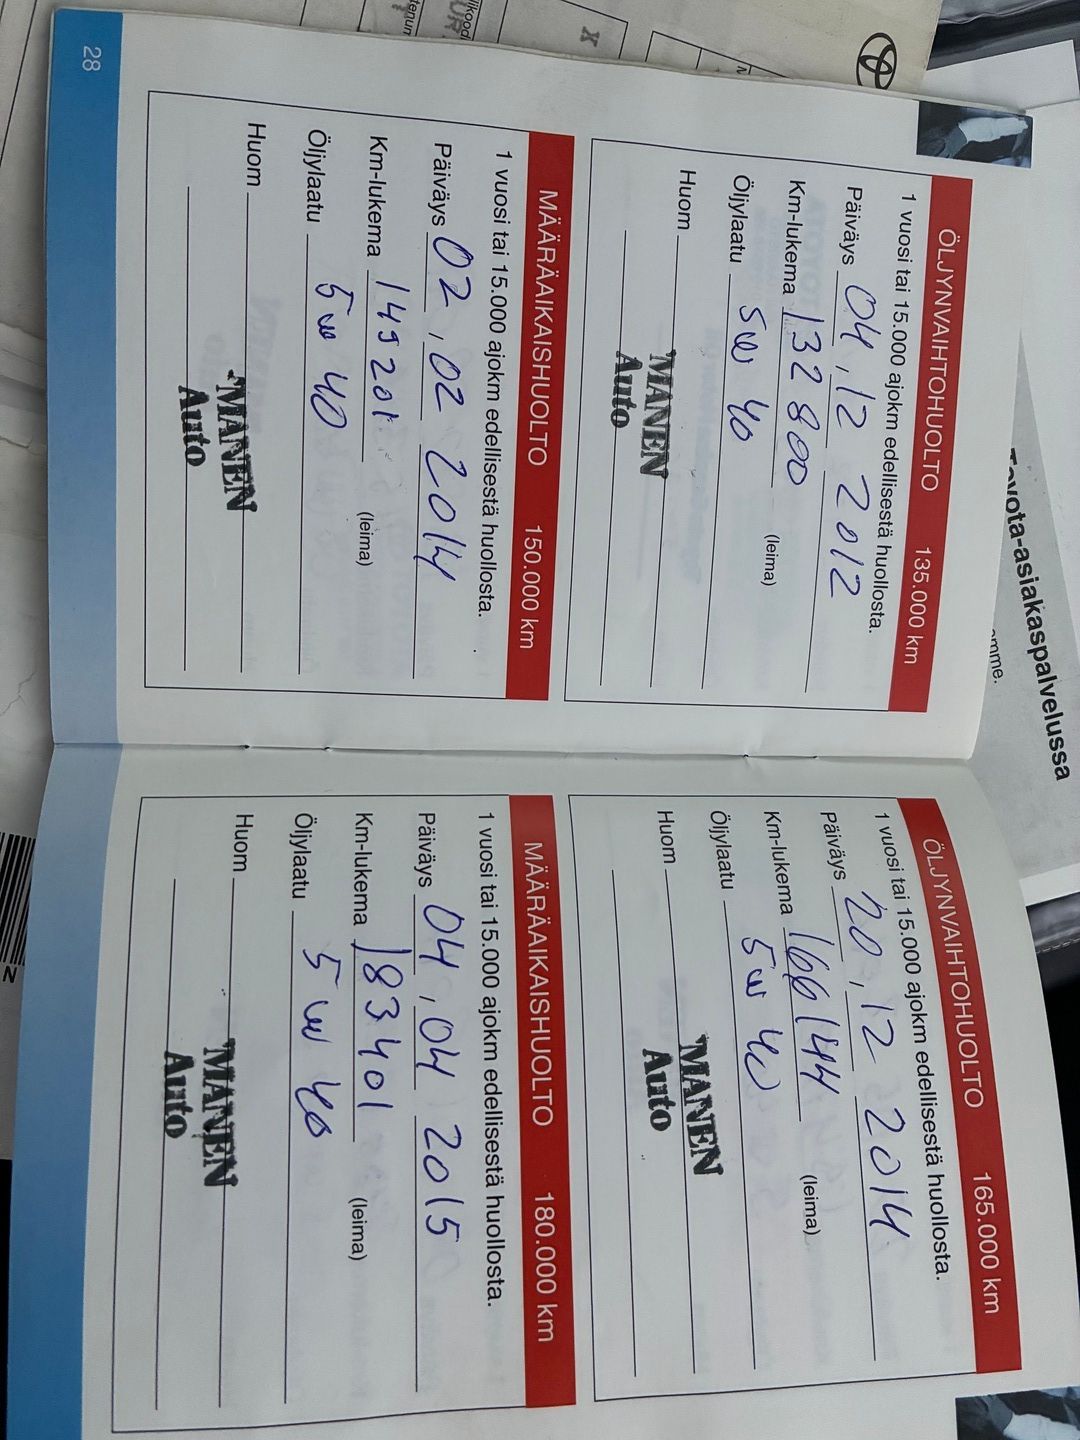 ÖLJYNVAIHTOHUOLTO 135.000 km
1 vuosi tai 15.000 ajokm edellisestä huollosta.
Päiväys 04.12 2012
Km-lukema 132 800 (leima)
Öljylaatu 5w 40
Huom
MANEN
Auto
MÄÄRÄAIKAISHUOLTO 150.000 km
1 vuosi tai 15.000 ajokm edellisestä huollosta.
Päiväys 02.02 2014
Km-lukema 149201 (leima)
Öljylaatu 5w 40
Huom
MANEN
Auto
28
ÖLJYNVAIHTOHUOLTO 165.000 km
1 vuosi tai 15.000 ajokm edellisestä huollosta.
Päiväys 20.12 2014
Km-lukema 166144 (leima)
Öljylaatu 5w 40
Huom
MANEN
Auto
MÄÄRÄAIKAISHUOLTO 180.000 km
1 vuosi tai 15.000 ajokm edellisestä huollosta.
Päiväys 04.04 2015
Km-lukema 183401 (leima)
Öljylaatu 5w 40
Huom
MANEN
Auto
Toyota-asiakaspalvelussa
X
N